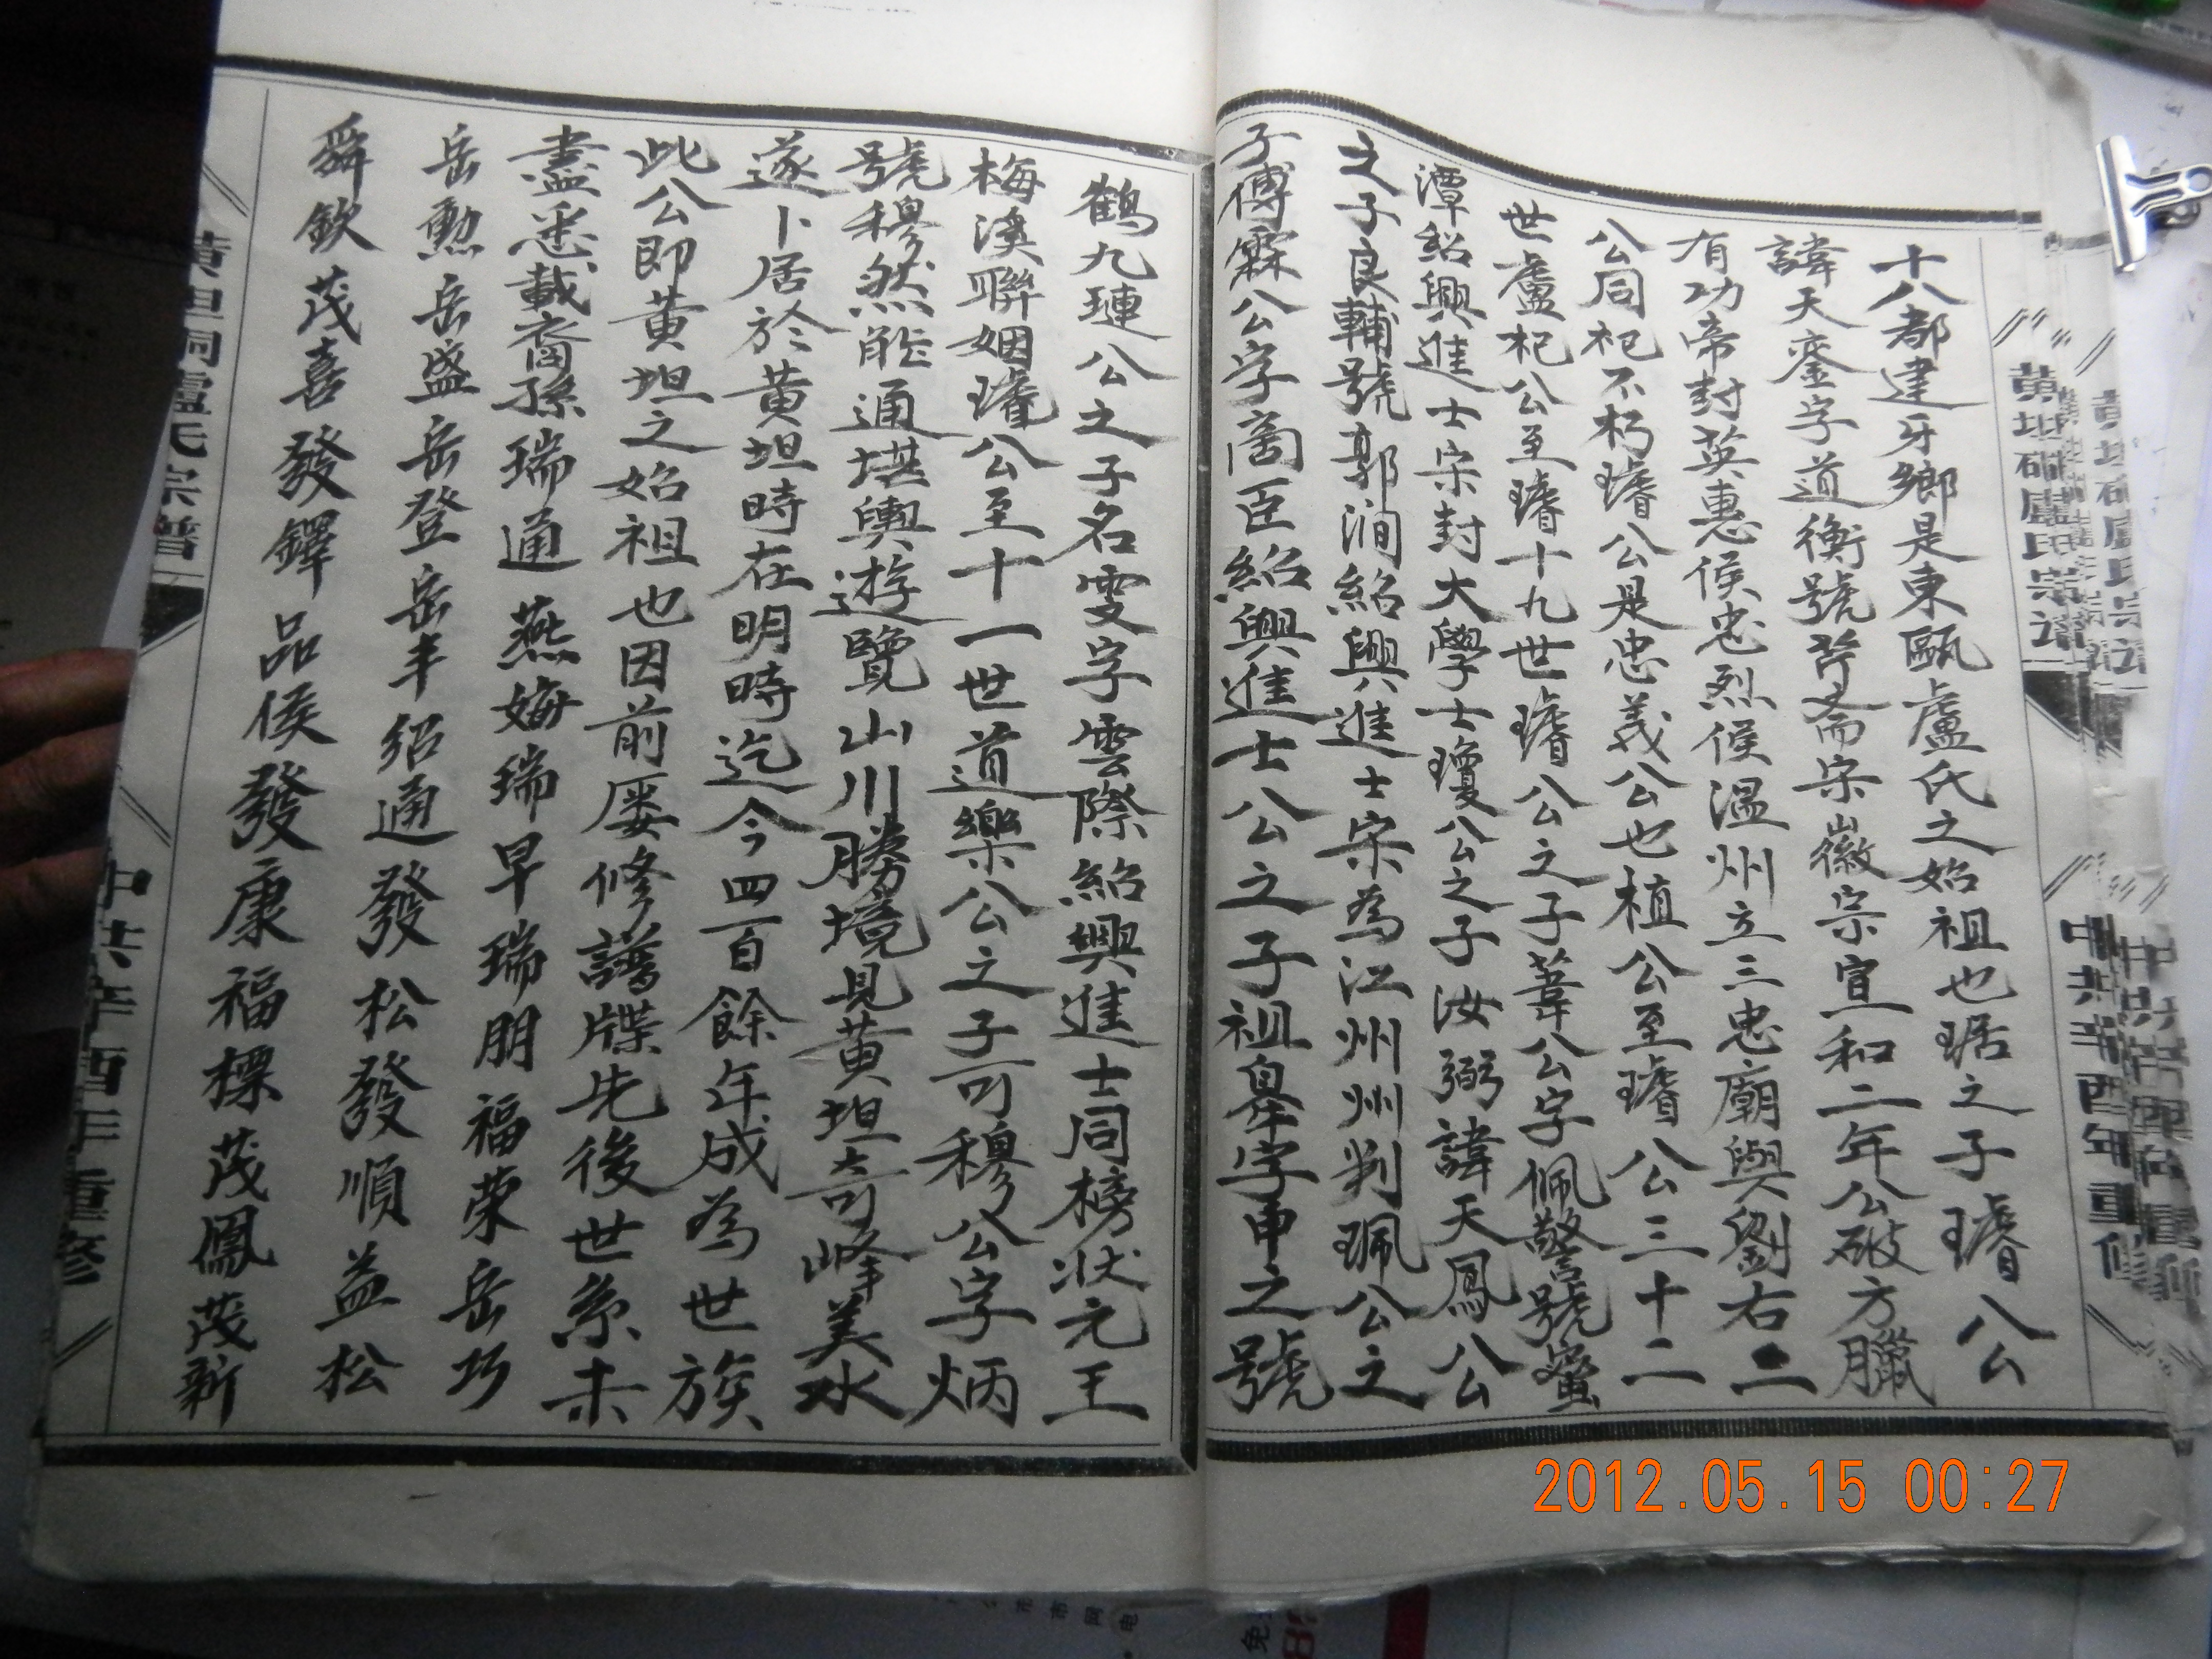 十八都建牙鄉是東甌盧氏之始祖也琚之子璿公
諱天銮字道衡號芹斋宗徽宗宣和二年公破方臘
有功帝封英惠侯忠烈侯温州立三忠廟與劉右二
公同祀不朽璿公是忠義公也植公至璿公三十二
世盧祀公至璿十九世璿公之子葦公字佩警號蜜
潭紹興進士宗封大學士瓊公之子汝弼諱天鳳公
之子良輔號郭澗紹興進士宗為江州州判珮公之
子傅霖公字啇臣紹興進士公之子祖皋字申之號
鶴九璉公之子名雯字雲際紹興進士同榜状元王
梅溪聯姻璿公至十一世道樂公之子可穆公字炳
號穆然能通堪輿遊覽山川勝境見黄坦奇峰美水
遂卜居於黄坦時在明時迄今四百餘年成為世族
此公即黄坦之始祖也因前屡修譜牒先後世系未
盡悉載裔孫瑞通 燕海瑞早瑞朋福荣岳巧
岳勲岳盛岳登岳丰紹通發松發順益松
舜欽茂喜發鐸品侯發康福標茂鳳茂新
黄坦硐盧氏宗譜
中共辛酉年重修
黄坦硐盧氏宗譜
中共辛酉年重修
2012.05.15 00:27